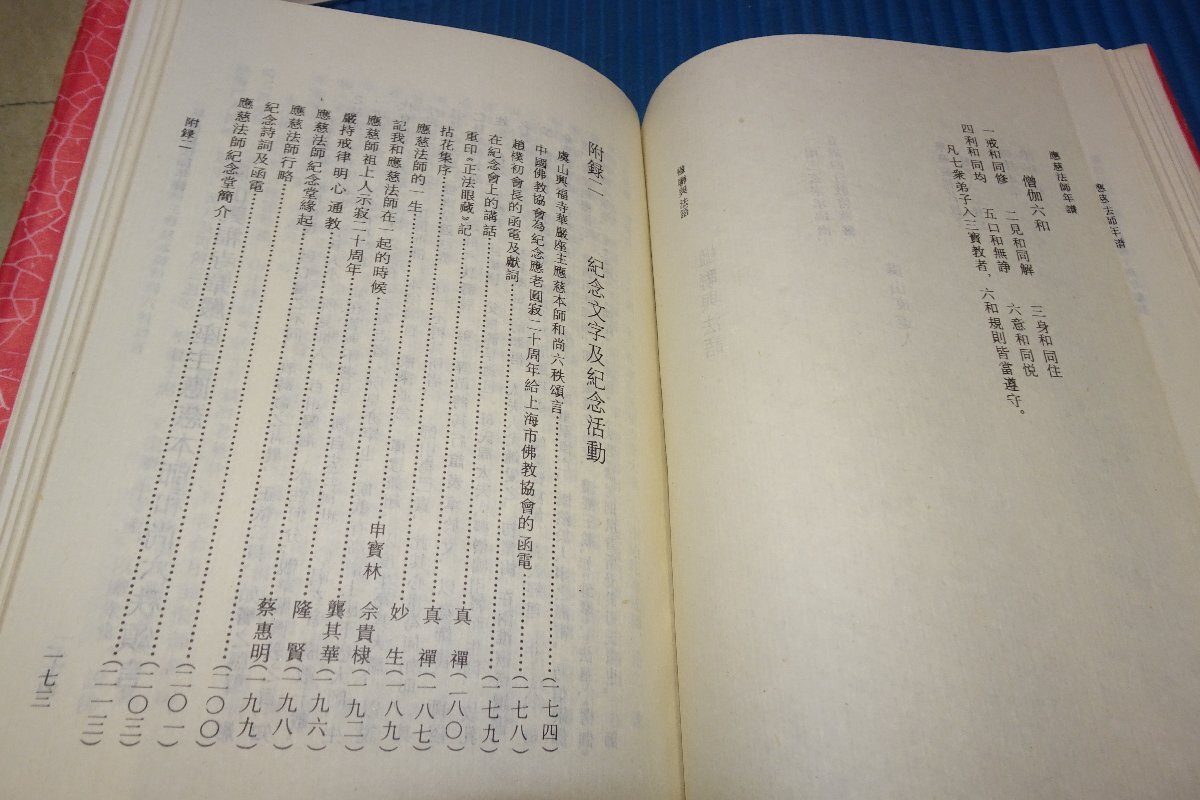 應慈法師年譜
應慈法師年譜
僧伽六和
一戒和同修　二見和同解　三身和同住
四利和同均　五口和無諍　六意和同悦
凡七衆弟子入三寶教者，六和規則皆當遵守。
附録二　紀念文字及紀念活動
虞山興福寺華嚴座主應慈本師和尚六秩頌言……(一七四)
中國佛教協會為紀念應老圓寂二十周年給上海市佛教協會的函電……(一七八)
趙樸初會長的函電及獻詞……(一七九)
在紀念會上的講話……真　禪(一八〇)
重印《正法眼藏》記……真　禪(一八七)
拈花集序……妙　生(一八九)
應慈法師的一生……申寶林　佘貴棣(一九二)
記我和應慈法師在一起的時候……龔其華(一九六)
應慈師祖上人示寂二十周年……隆　賢(一九八)
嚴持戒律 明心 通教……蔡惠明(一九九)
應慈法師紀念堂緣起……(二〇〇)
應慈法師行略……(二〇一)
紀念詩詞及函電……(二〇三)
應慈法師紀念堂簡介……(二一三)
附録二
一七三